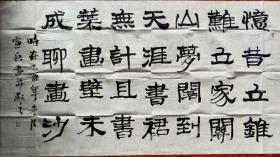 憶昔立錐
難立家關
山夢闊到
天涯書裙
無計且書
葉畫壁未
成聊畫沙
時在酉年冬月